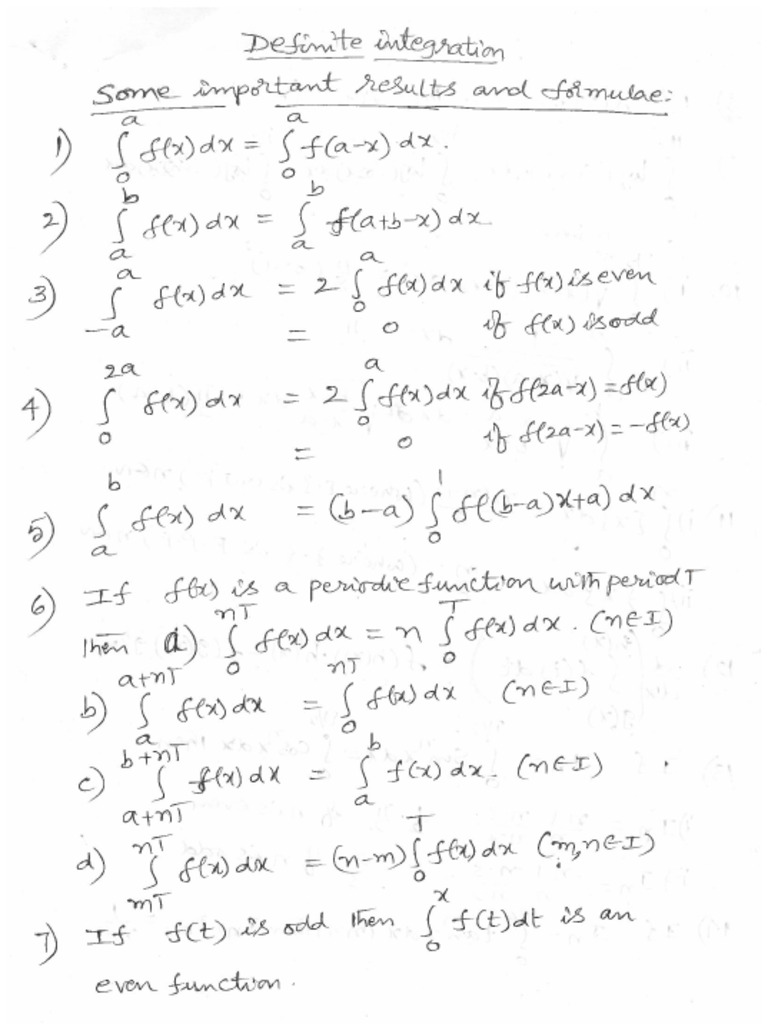 Definite integration
Some important results and formulae:
1) ∫₀ᵃ f(x) dx = ∫₀ᵃ f(a-x) dx.
2) ∫ₐᵇ f(x) dx = ∫ₐᵇ f(a+b-x) dx
3) ∫₋ₐᵃ f(x) dx = 2 ∫₀ᵃ f(x) dx if f(x) is even
= 0 if f(x) is odd
4) ∫₀²ᵃ f(x) dx = 2 ∫₀ᵃ f(x) dx if f(2a-x) = f(x)
= 0 if f(2a-x) = -f(x)
5) ∫ₐᵇ f(x) dx = (b-a) ∫₀¹ f((b-a)x+a) dx
6) If f(x) is a periodic function with period T
then a) ∫₀ⁿᵀ f(x) dx = n ∫₀ᵀ f(x) dx. (n∈I)
b) ∫ₐᵃ⁺ⁿᵀ f(x) dx = ∫₀ⁿᵀ f(x) dx (n∈I)
c) ∫_{a+nT}^{b+nT} f(x) dx = ∫ₐᵇ f(x) dx. (n∈I)
d) ∫_{mT}^{nT} f(x) dx = (n-m) ∫₀ᵀ f(x) dx (m,n∈I)
7) If f(t) is odd then ∫₀ˣ f(t) dt is an
even function.